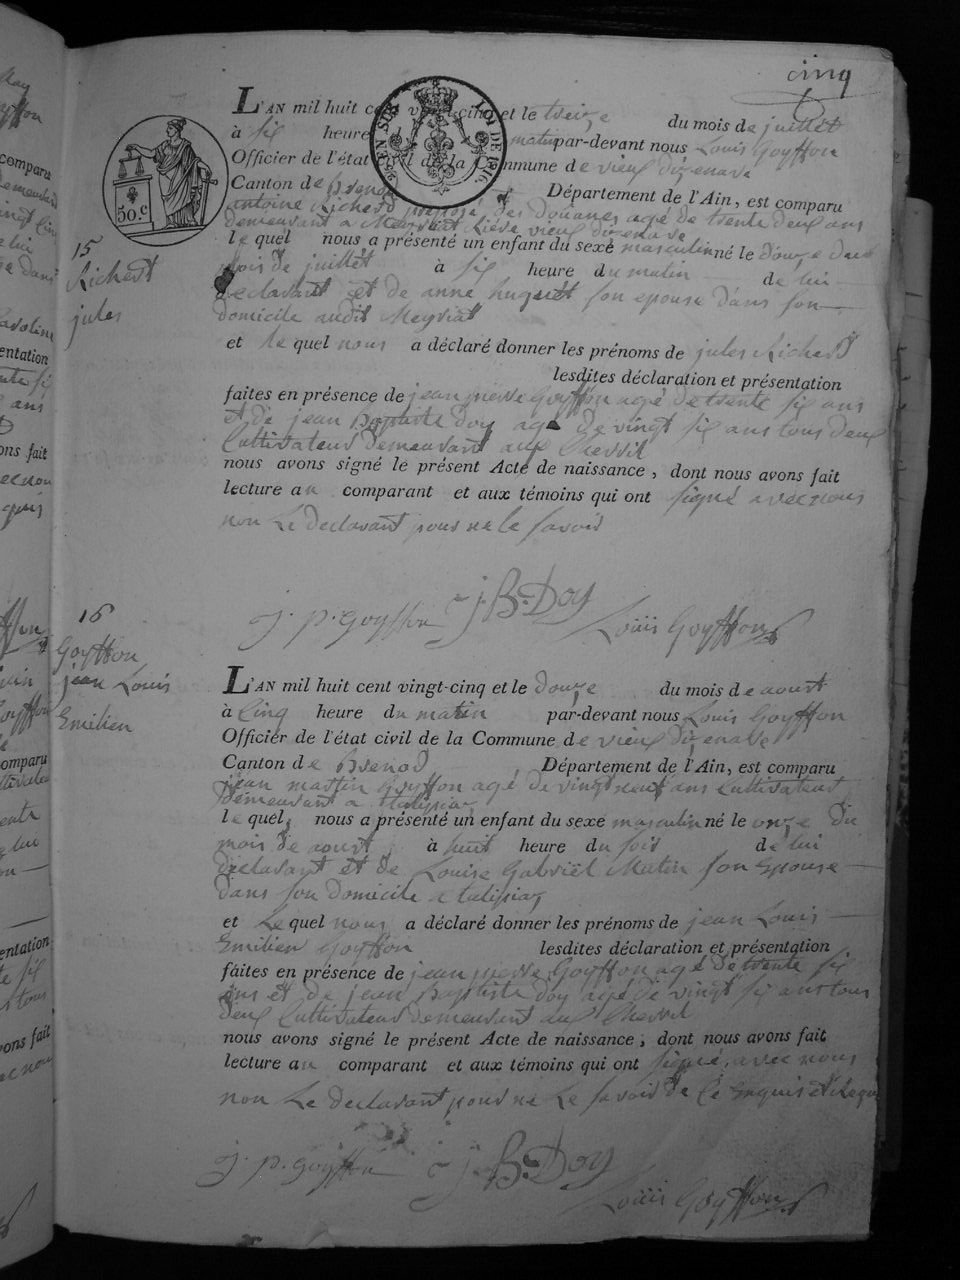 cinq
L'AN mil huit cent vingt-cinq et le treize du mois de juillet
à six heure du matin par-devant nous Louis Goyffon
Officier de l'état civil de la Commune de vieux dizenave
Canton de Brenod Département de l'Ain, est comparu
antoine Richerd préposé des douanes agé de trente deux ans
demeurant a Meyriat Rière vieux dizenave
le quel nous a présenté un enfant du sexe masculin né le douze dud
mois de juillet à six heure du matin de lui
declarant et de anne huguet son epouse dans son
domicile audit Meyriat
et le quel nous a déclaré donner les prénoms de jules Richerd
lesdites déclaration et présentation
faites en présence de jean pierre Goyffon agé de trente six ans
et de jean Baptiste Doy agé de vingt six ans tous deux
Cultivateurs demeurant aux
nous avons signé le présent Acte de naissance, dont nous avons fait
lecture au comparant et aux témoins qui ont signé avec nous
non Le declarant pour ne le savoir
J. p. Goyffon J. B. Doy
Louis Goyffon
15
Richerd
jules
50.c
25 EN SUS
LOI DE 1816.
16
Goyffon
jean Louis
Emilien
L'AN mil huit cent vingt-cinq et le douze du mois de aoust
à Cinq heure du matin par-devant nous Louis Goyffon
Officier de l'état civil de la Commune de vieux dizenave
Canton de Brenod Département de l'Ain, est comparu
jean martin Goyffon agé de vingt neuf ans Cultivateur
demeurant a
le quel nous a présenté un enfant du sexe masculin né le onze du
mois de aoust à huit heure du soir de lui
declarant et de Louise Gabriel Matin son Epouse
dans son domicile a
et Le quel nous a déclaré donner les prénoms de jean Louis
Emilien Goyffon lesdites déclaration et présentation
faites en présence de jean pierre Goyffon agé de trente six
ans et de jean Baptiste Doy agé de vingt six ans tous
deux Cultivateurs demeurant aux
nous avons signé le présent Acte de naissance, dont nous avons fait
lecture au comparant et aux témoins qui ont signé, avec nous
non Le declarant pour ne Le savoir de Ce Enquis
J. p. Goyffon J. B. Doy
Louis Goyffon